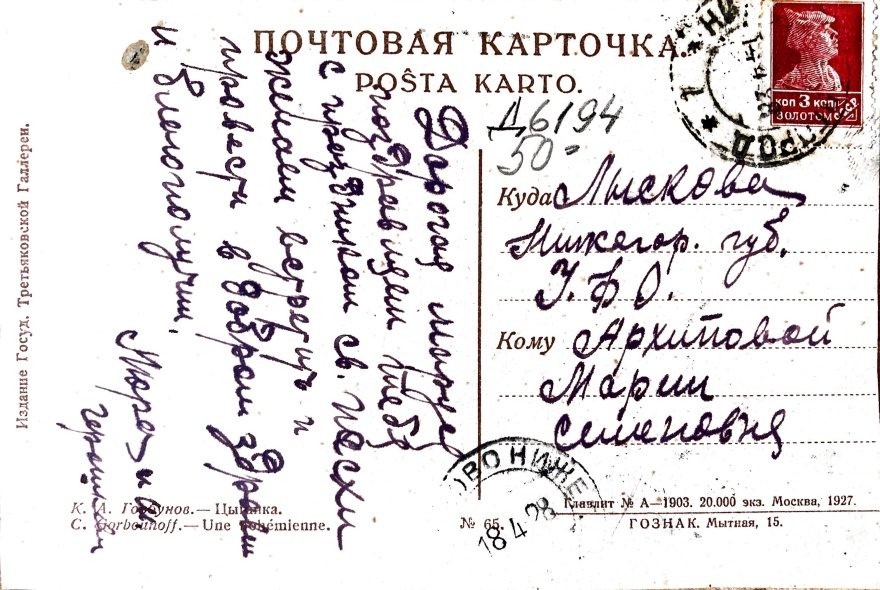 ПОЧТОВАЯ КАРТОЧКА.
POŜTA KARTO.
Издание Госуд. Третьяковской Галлереи.
Дорогая Маруся
поздравляем тебя
с праздником св. пасхи
желаем встретить и
провести в добром здравии
и благополучии.
Д6194
50-
коп 3 коп
ЗОЛОТОМ
Куда Лыскова
Нижегор. губ.
У. Ф. О.
Кому Архиповой
Марии
Семеновне
К. А. Горбунов.— Цыганка.
C. Gorbounoff.— Une bohémienne.
№ 65.
ОВО НИЖЕ
18 4 28
Главлит № А—1903. 20.000 экз. Москва, 1927.
ГОЗНАК. Мытная, 15.